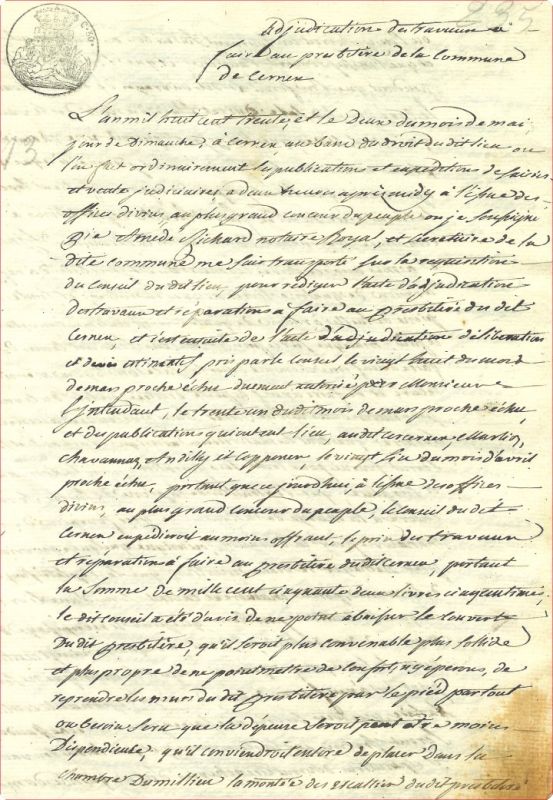 235
adjudication des travaux à
faire au presbitère de la Commune
de Cernex
L'an mil huit cent trente, et le deux du mois de mai,
jour de Dimanche, à Cernex au banc du droit du dit lieu ou
l'on fait ordinairement les publications et expeditions de saisies
et vente judiciaires a deux heures après midy à l'issue des
offices divins, au plus grand concour du peuple ou je soussigné
Pie Amédé Richard notaire Royal, et secretaire de la
dite commune me suis transporté sur la requisition
du Conseil du dit lieu, pour rediger l'acte d'adjudication
des travaux et réparations a faire au presbitère du dit
Cernex, et ensuite de l'acte d'adjudication délibération
et devis estimatif, pris par le conseil le vingt huit du mois
de mars proche échu duement autorisé par Monsieur
l'intendant, le trente un du dit mois de mars proche échu,
et des publications qui ont eut lieu, au dit Cernex, Marlioz,
Chavannaz, Andilly et Copponex, le vingt du mois d'avril
proche échu, portant que ce jourd'hui, à l'issue des offices
divins, au plus grand concour du peuple, le conseil du dit
Cernex expedieroit au moins offrant, le prix des travaux
et réparation à faire au presbitère du dit Cernex, portant
la somme de mille cent cinquante deux livres cinq centimes,
le dit conseil a été d'avis de ne point abaisser le couvert
du dit presbitère, qu'il seroit plus convenable plus sollide
et plus propre de ne point mettre de confort, ny eperons, de
reprendre les murs du dit presbitère par le pied partout
ou besoin sera que la dépense seroit peut etre moins
dispendieuse, qu'il conviendroit encore de placer dans la
chambre du millieu la montée des escallier du dit presbitère